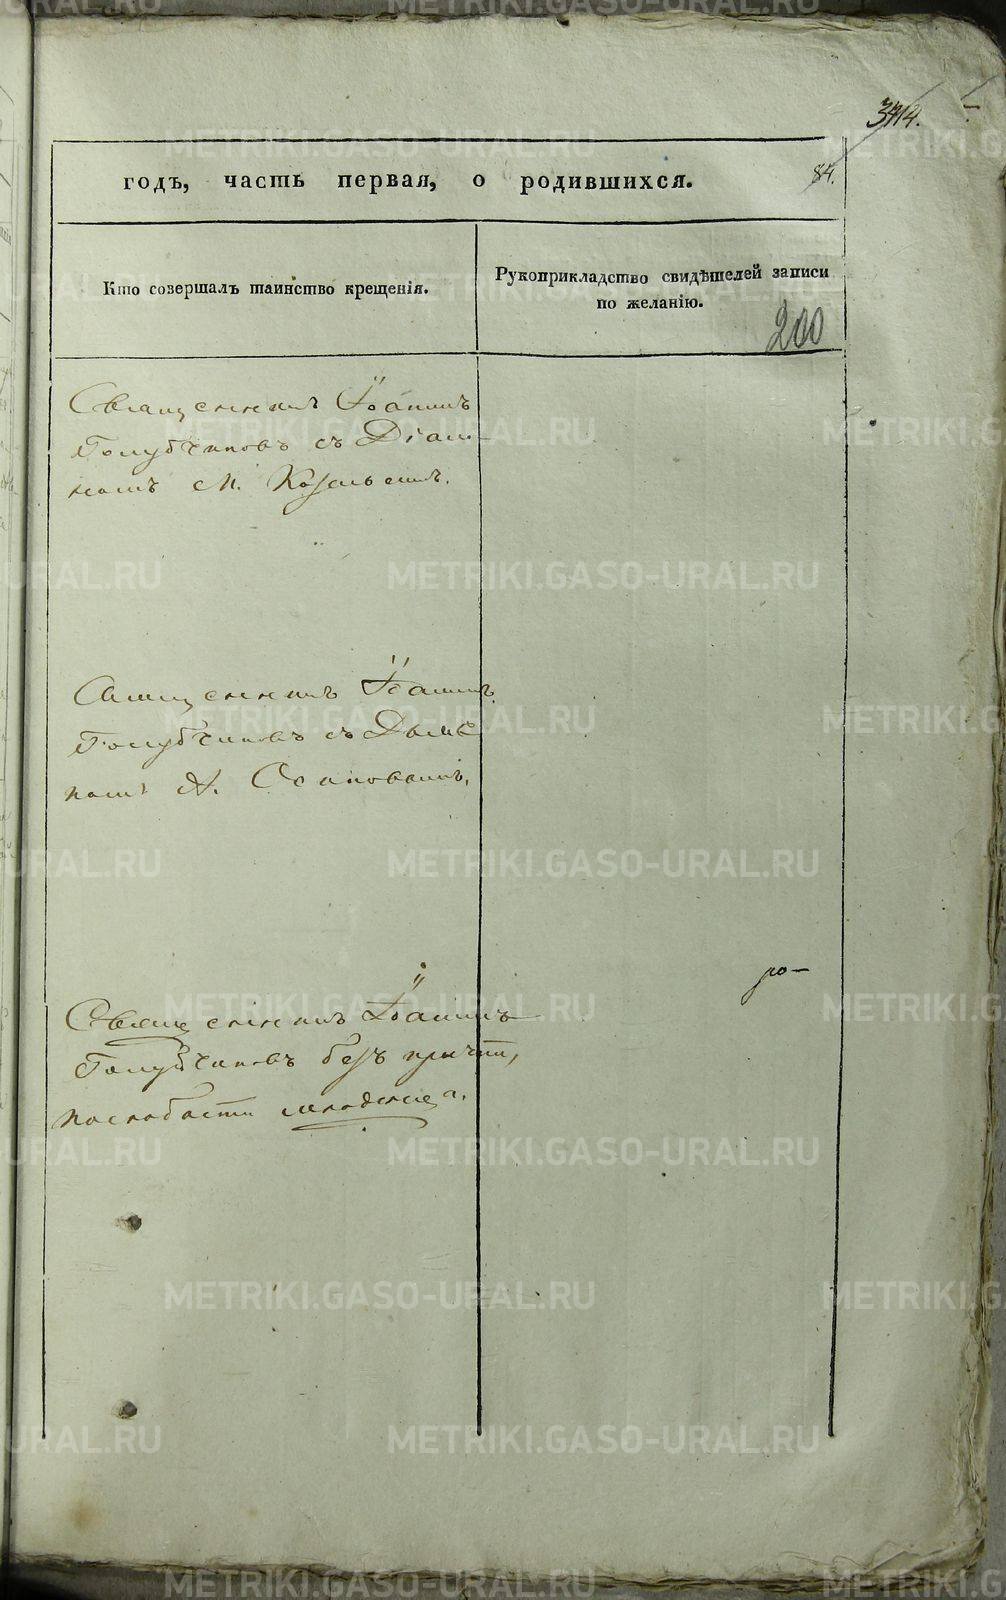 84.
годъ, часть первая, о родившихся.
Кто совершалъ таинство крещенія.
Рукоприкладство свидѣтелей записи
по желанію.
200
Священникъ Іоаннъ
Голубчиковъ съ Діач-
комъ М.
Священникъ Іоаннъ
Голубчиковъ съ Дьяч
комъ А. Осиповымъ.
Священникъ Іоаннъ
Голубчиковъ безъ причта,
по слабости младенца.
METRIKI.GASO-URAL.RU